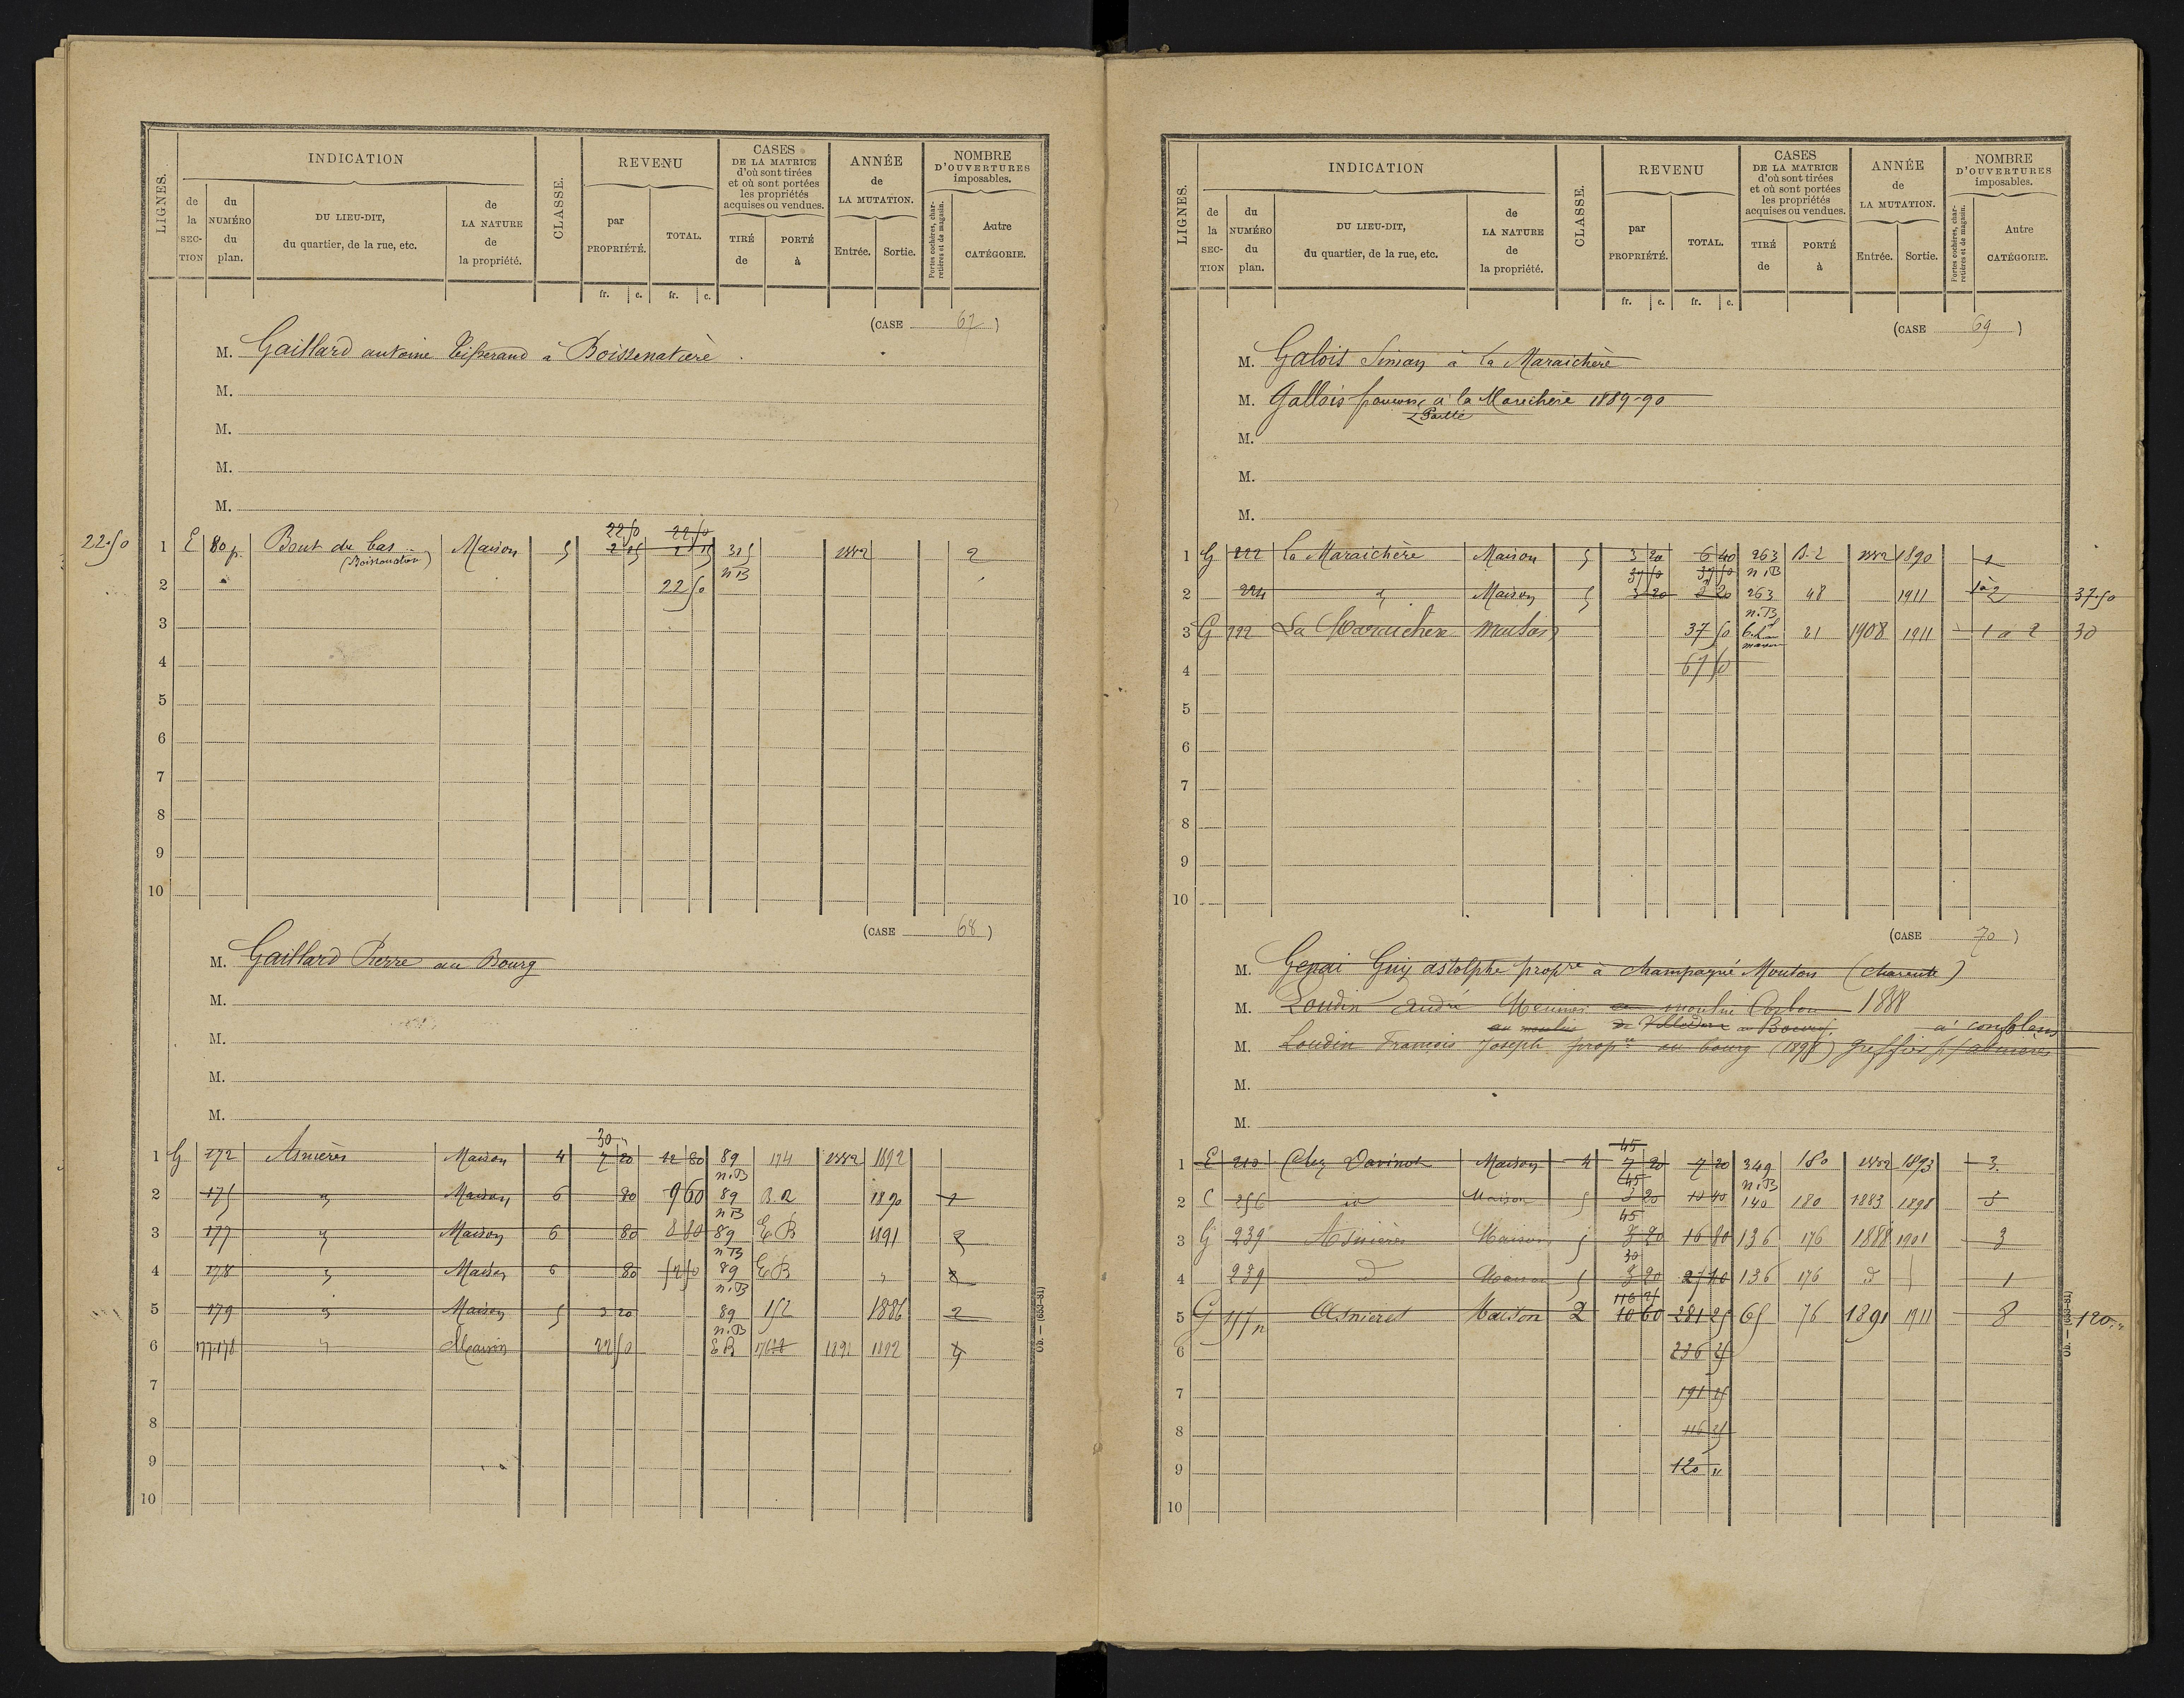 LIGNES.
INDICATION
de la SECTION
du NUMÉRO du plan.
DU LIEU-DIT, du quartier, de la rue, etc.
de LA NATURE de la propriété.
CLASSE.
REVENU
par PROPRIÉTÉ.
TOTAL.
fr. c. fr. c.
CASES DE LA MATRICE d'où sont tirées et où sont portées les propriétés acquises ou vendues.
TIRÉ de
PORTÉ à
ANNÉE de LA MUTATION.
Entrée. Sortie.
NOMBRE D'OUVERTURES imposables.
Portes cochères, charretières et de magasin.
Autre CATÉGORIE.
(CASE 67)
M. Gaillard antoine Tisserand à Boissenatière
M.
M.
M.
M.
22.50 1 E 80 p. Bout du bas (Boissenatière) Maison 5 22 50 22 50 2 25 2 25 325 n B 1882 2
2 22 50
3
4
5
6
7
8
9
10
(CASE 68)
M. Gaillard Pierre au Bourg
M.
M.
M.
M.
30 "
1 G 172 Asnières Maison 4 7 20 12 80 89 174 1882 1892
2 175 " Maison 6 80 9 60 n.B 89 B.R 1890 1
3 177 " Maison 6 80 8 80 n B 89 E B 1891 2
4 178 " Maison 6 80 52 50 n B 89 E B "
5 179 " Maison 5 3 20 n.B 89 152 1886 2
6 177.178 " Maison 22 50 n.B E B 1891 1892 4
7
8
9
10
Ob. — (653-81)
LIGNES.
INDICATION
de la SECTION
du NUMÉRO du plan.
DU LIEU-DIT, du quartier, de la rue, etc.
de LA NATURE de la propriété.
CLASSE.
REVENU
par PROPRIÉTÉ.
TOTAL.
fr. c. fr. c.
CASES DE LA MATRICE d'où sont tirées et où sont portées les propriétés acquises ou vendues.
TIRÉ de
PORTÉ à
ANNÉE de LA MUTATION.
Entrée. Sortie.
NOMBRE D'OUVERTURES imposables.
Portes cochères, charretières et de magasin.
Autre CATÉGORIE.
(CASE 69)
M. Galois Simon à la Maraichère
M. Gallois à la Marichère 1889-90
M.
M.
M.
1 G 222 La Maraichère Maison 5 3 20 6 40 263 1882 1890 1
2 224 " Maison 5 37 50 3 20 37 50 3 20 n.B 263 48 1911 1 à 2 37.50
3 G 222 La Maraichère maison 37 50 n.B 21 1908 1911 1 a 2 30
4 67 50
5
6
7
8
9
10
(CASE 70)
M. Genai Guy astolphe propre à champagné Mouton (charente)
M. Loudin André Meunier au moulin 1888
au moulin au Bourg. à confolens
M. Loudin François Joseph propre au bourg (1898) greffier
M.
M.
45
1 E 210 Chez Maison 4 7 20 7 20 349 180 1882 1893 3
2 C 256 id Maison 5 45 3 20 10 40 n.B 140 180 1883 1898 3
3 G 239 Asnières Maison 5 45 3 20 16 80 136 176 1888 1901 3
4 239 d Maison 5 30 3 20 27 20 136 176 d 1
5 G Asnières Maison 2 116 25 10 60 281 25 65 76 1891 1911 8 120 "
6 236 25
7 191 25
8 116 25
9 120 "
10
Ob. — (653-81)